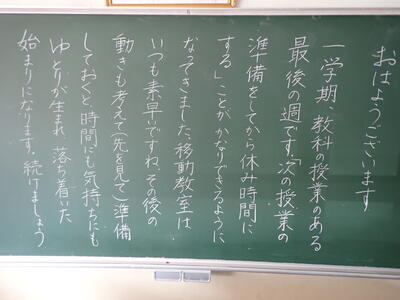 おはようございます
一学期、教科の授業のある
最後の週です。「次の授業の
準備をしてから休み時間に
する」ことが かなりできるように
なってきました。移動教室は
いつも素早いですね。その後の
動きも考えて(先を見て)準備
しておくと、時間にも気持ちにも
ゆとりが生まれ、落ち着いた
始まりになります。続けましょう